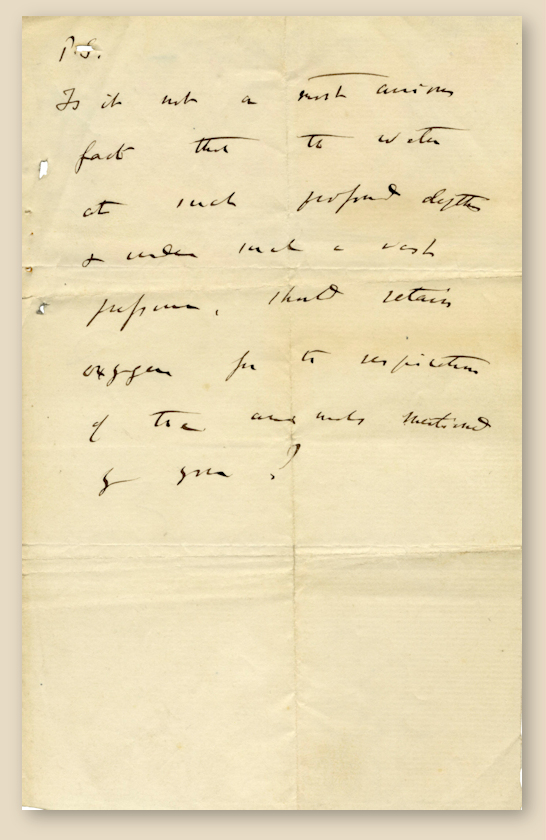 P.S.
Is it not a most curious
fact that the water
at such profound depths
& under such a vast
pressure, should retain
oxygen for the respiration
of the animals mentioned
by you?